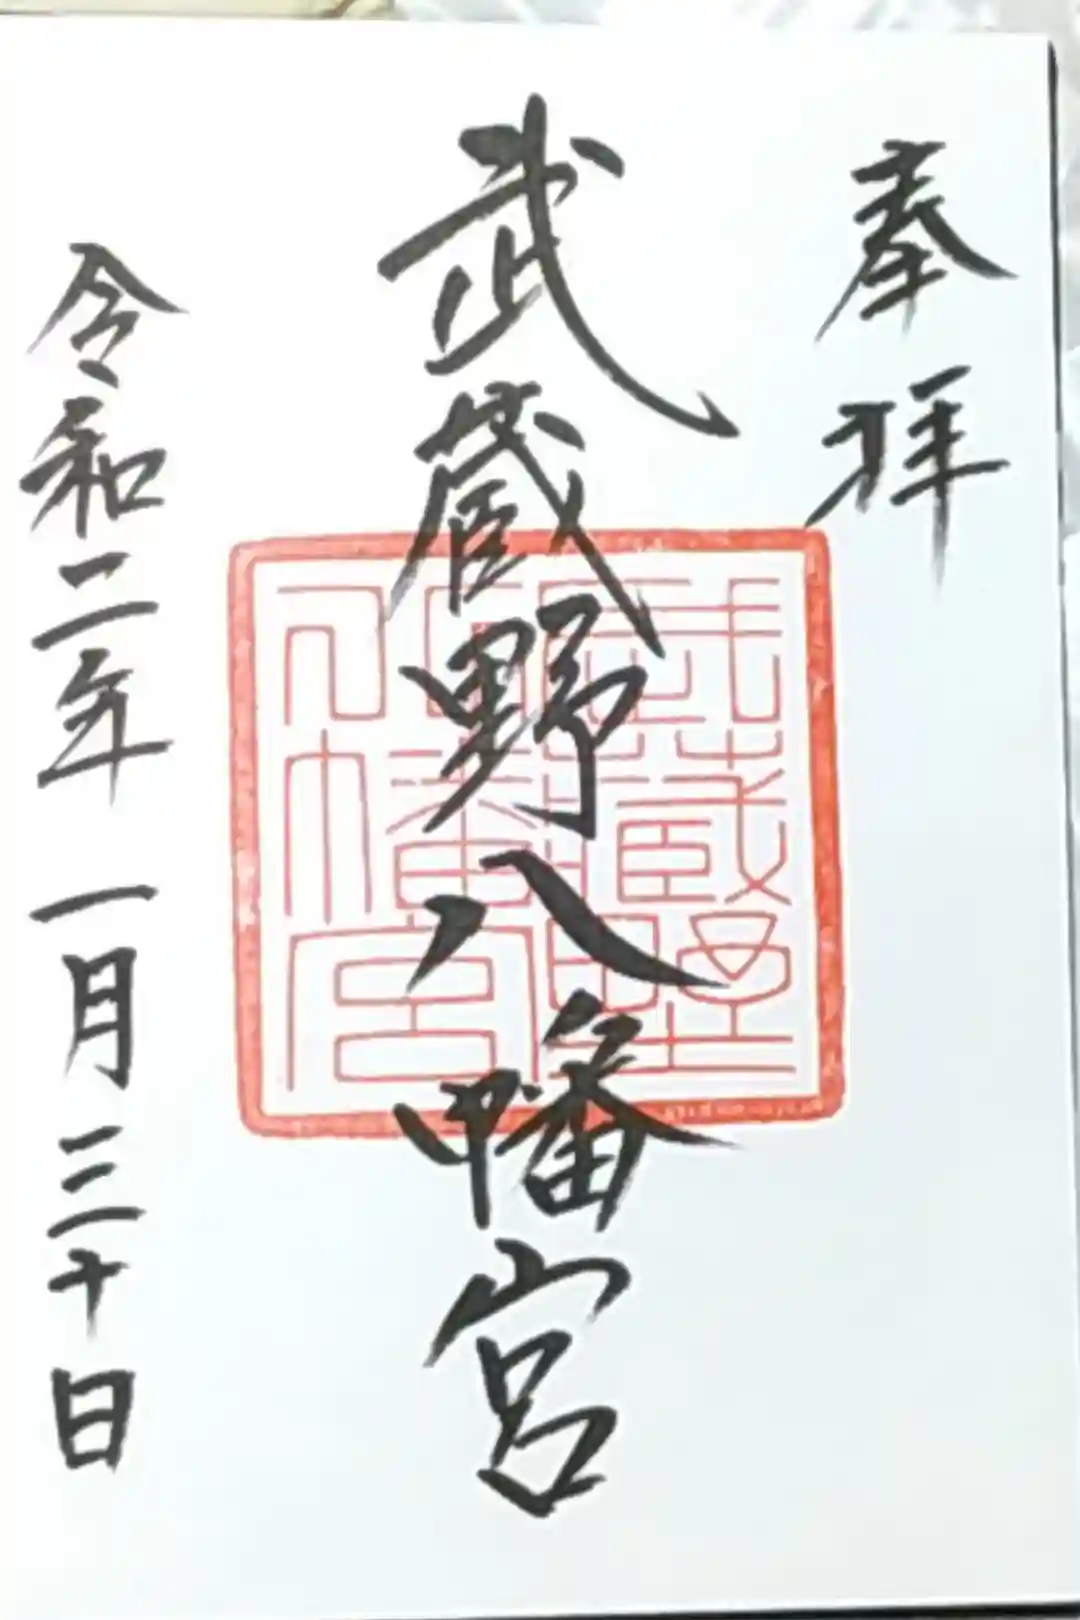 奉拝
武蔵野八幡宮
武蔵野八幡宮
令和二年一月三十日